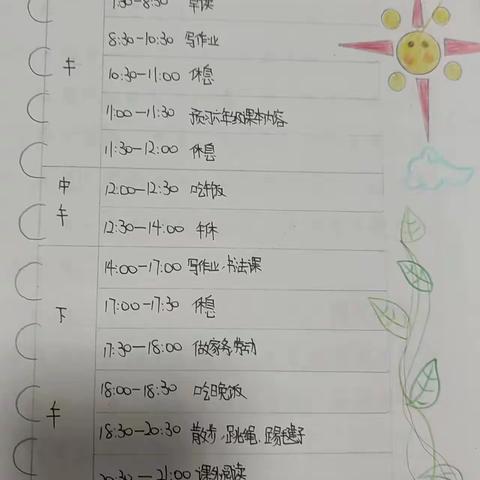 7:30-8:30 早读
8:30-10:30 写作业
午
10:30-11:00 休息
11:00-11:30 预习六年级课本内容
11:30-12:00 休息
中
12:00-12:30 吃午饭
午
12:30-14:00 午休
14:00-17:00 写作业、书法课
17:00-17:30 休息
下
17:30-18:00 做家务劳动
18:00-18:30 吃晚饭
午
18:30-20:30 散步、跳绳、踢毽子
20:30-21:00 课外阅读